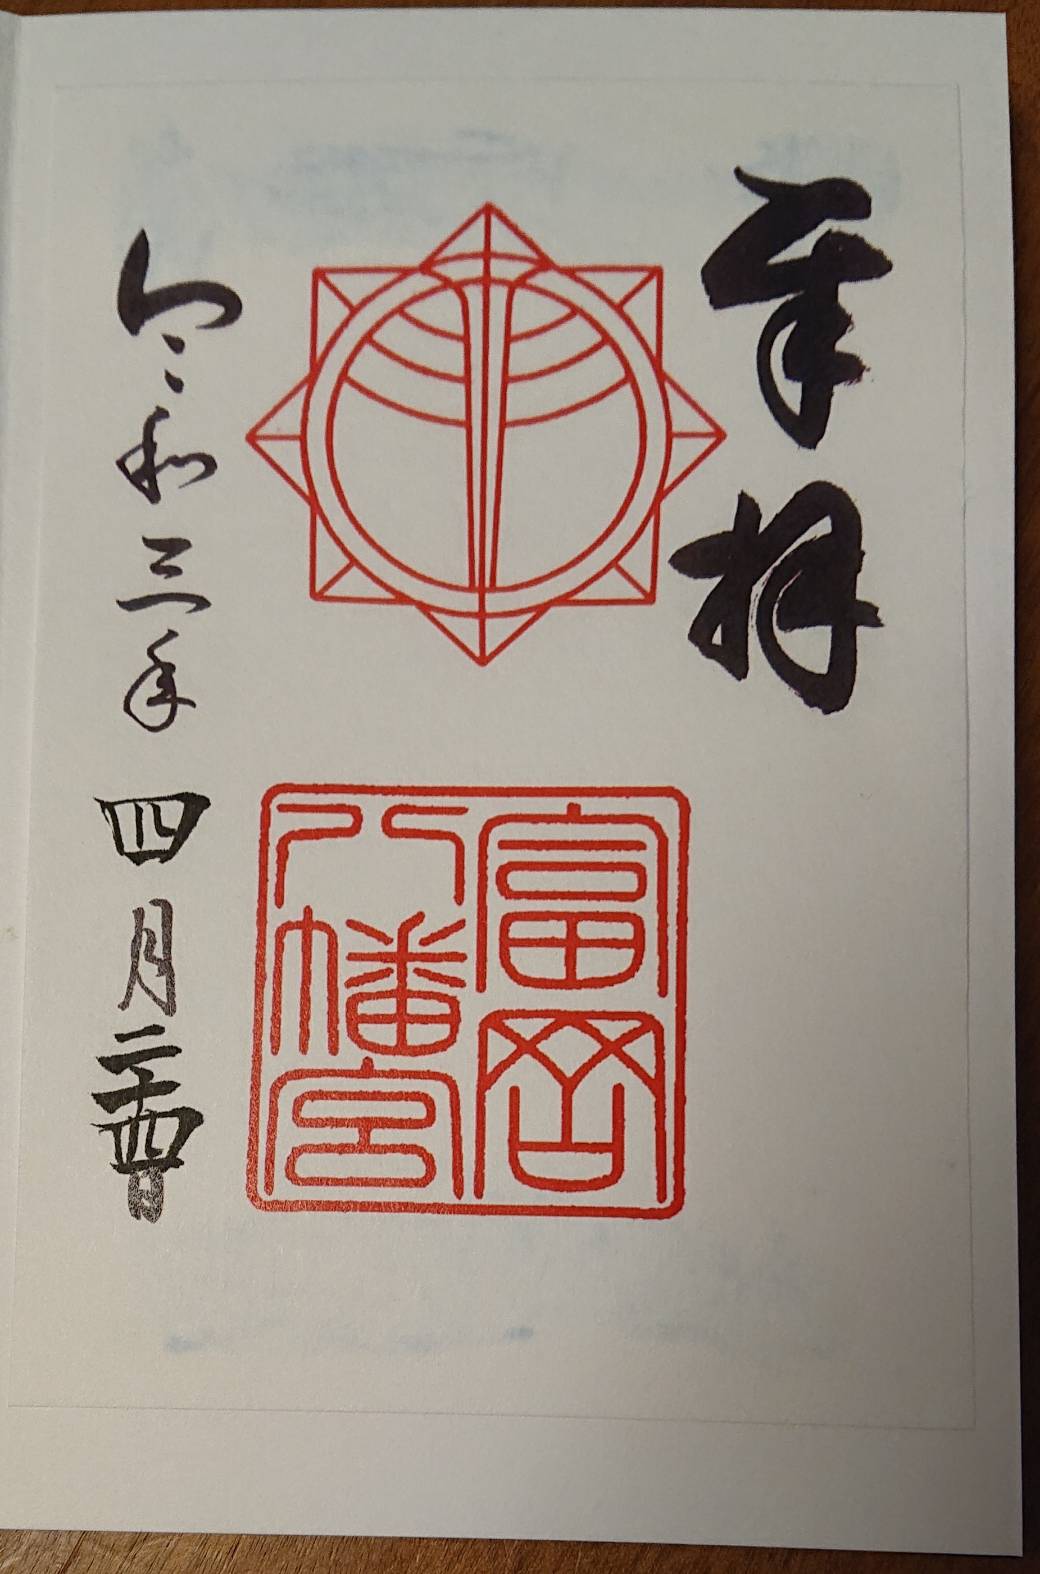 奉拝
富岡
八幡宮
令和三年四月二十四日